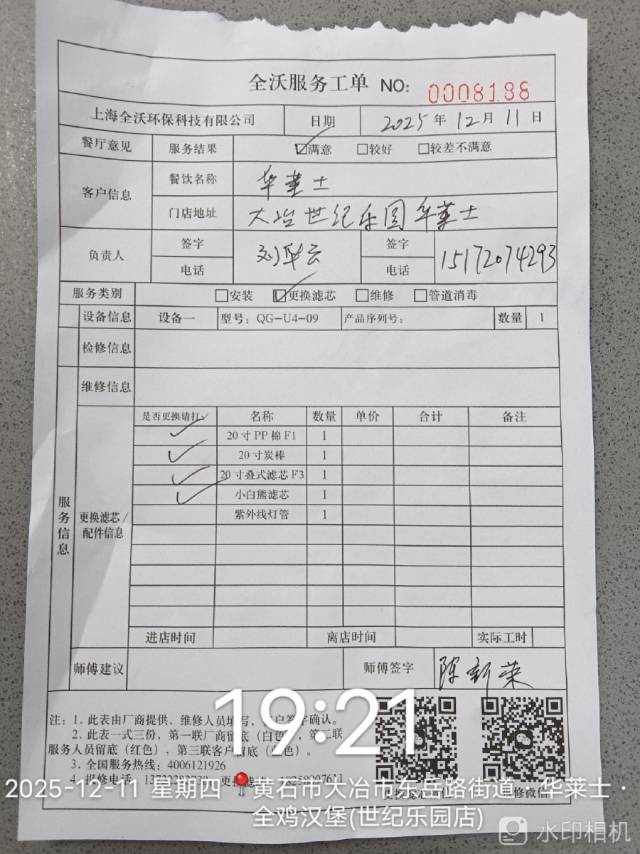 全沃服务工单 NO: 0008188
上海全沃环保科技有限公司 日期 2025年12月11日
餐厅意见 服务结果 ☑满意 □较好 □较差不满意
客户信息 餐饮名称 华莱士
门店地址 大冶世纪乐园华莱士
负责人 签字 刘华云 签字
电话 电话 15172074293
服务类别 □安装 ☑更换滤芯 □维修 □管道消毒
设备信息 设备一 型号: QG-U4-09 产品序列号: 数量 1
检修信息
维修信息
服务信息
更换滤芯/配件信息
是否更换请打√ 名称 数量 单价 合计 备注
✓ 20寸PP棉F1 1
✓ 20寸炭棒 1
✓ 20寸叠式滤芯F3 1
✓ 小白熊滤芯 1
紫外线灯管 1
进店时间 离店时间 实际工时
师傅建议 师傅签字 陈新荣
注: 1、此表由厂商提供，维修人员填写，客户签字确认。
2、此表一式三份，第一联厂商留底（白色），第二联
服务人员留底（红色），第三联客户留底
3、全国服务热线: 4006121926
4、报修电话:
19:21
2025-12-11 星期四 黄石市大冶市东岳路街道·华莱士·
全鸡汉堡(世纪乐园店)
水印相机